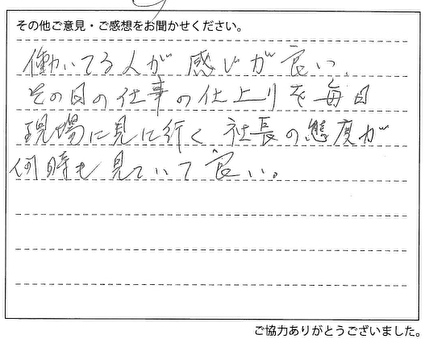 その他ご意見・ご感想をお聞かせください。
働いてる人が感じが良い、
その日の仕事の仕上りを毎日
現場に見に行く社長の態度が
何時も見ていて良い。
ご協力ありがとうございました。